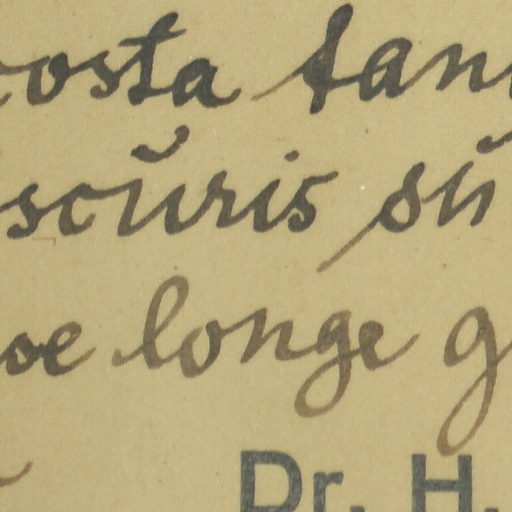 costa tan
scuris su
oe longe g
Dr. H.